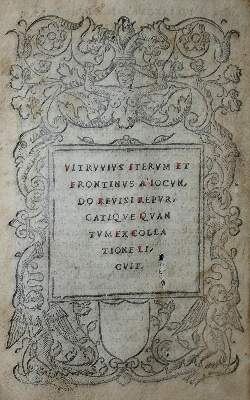 VITRVVIVS ITERVM ET
FRONTINVS A IOCVN
DO REVISI REPVR
GATIQVE QVAN
TVM EX COLLA
TIONE LI
CVIT.